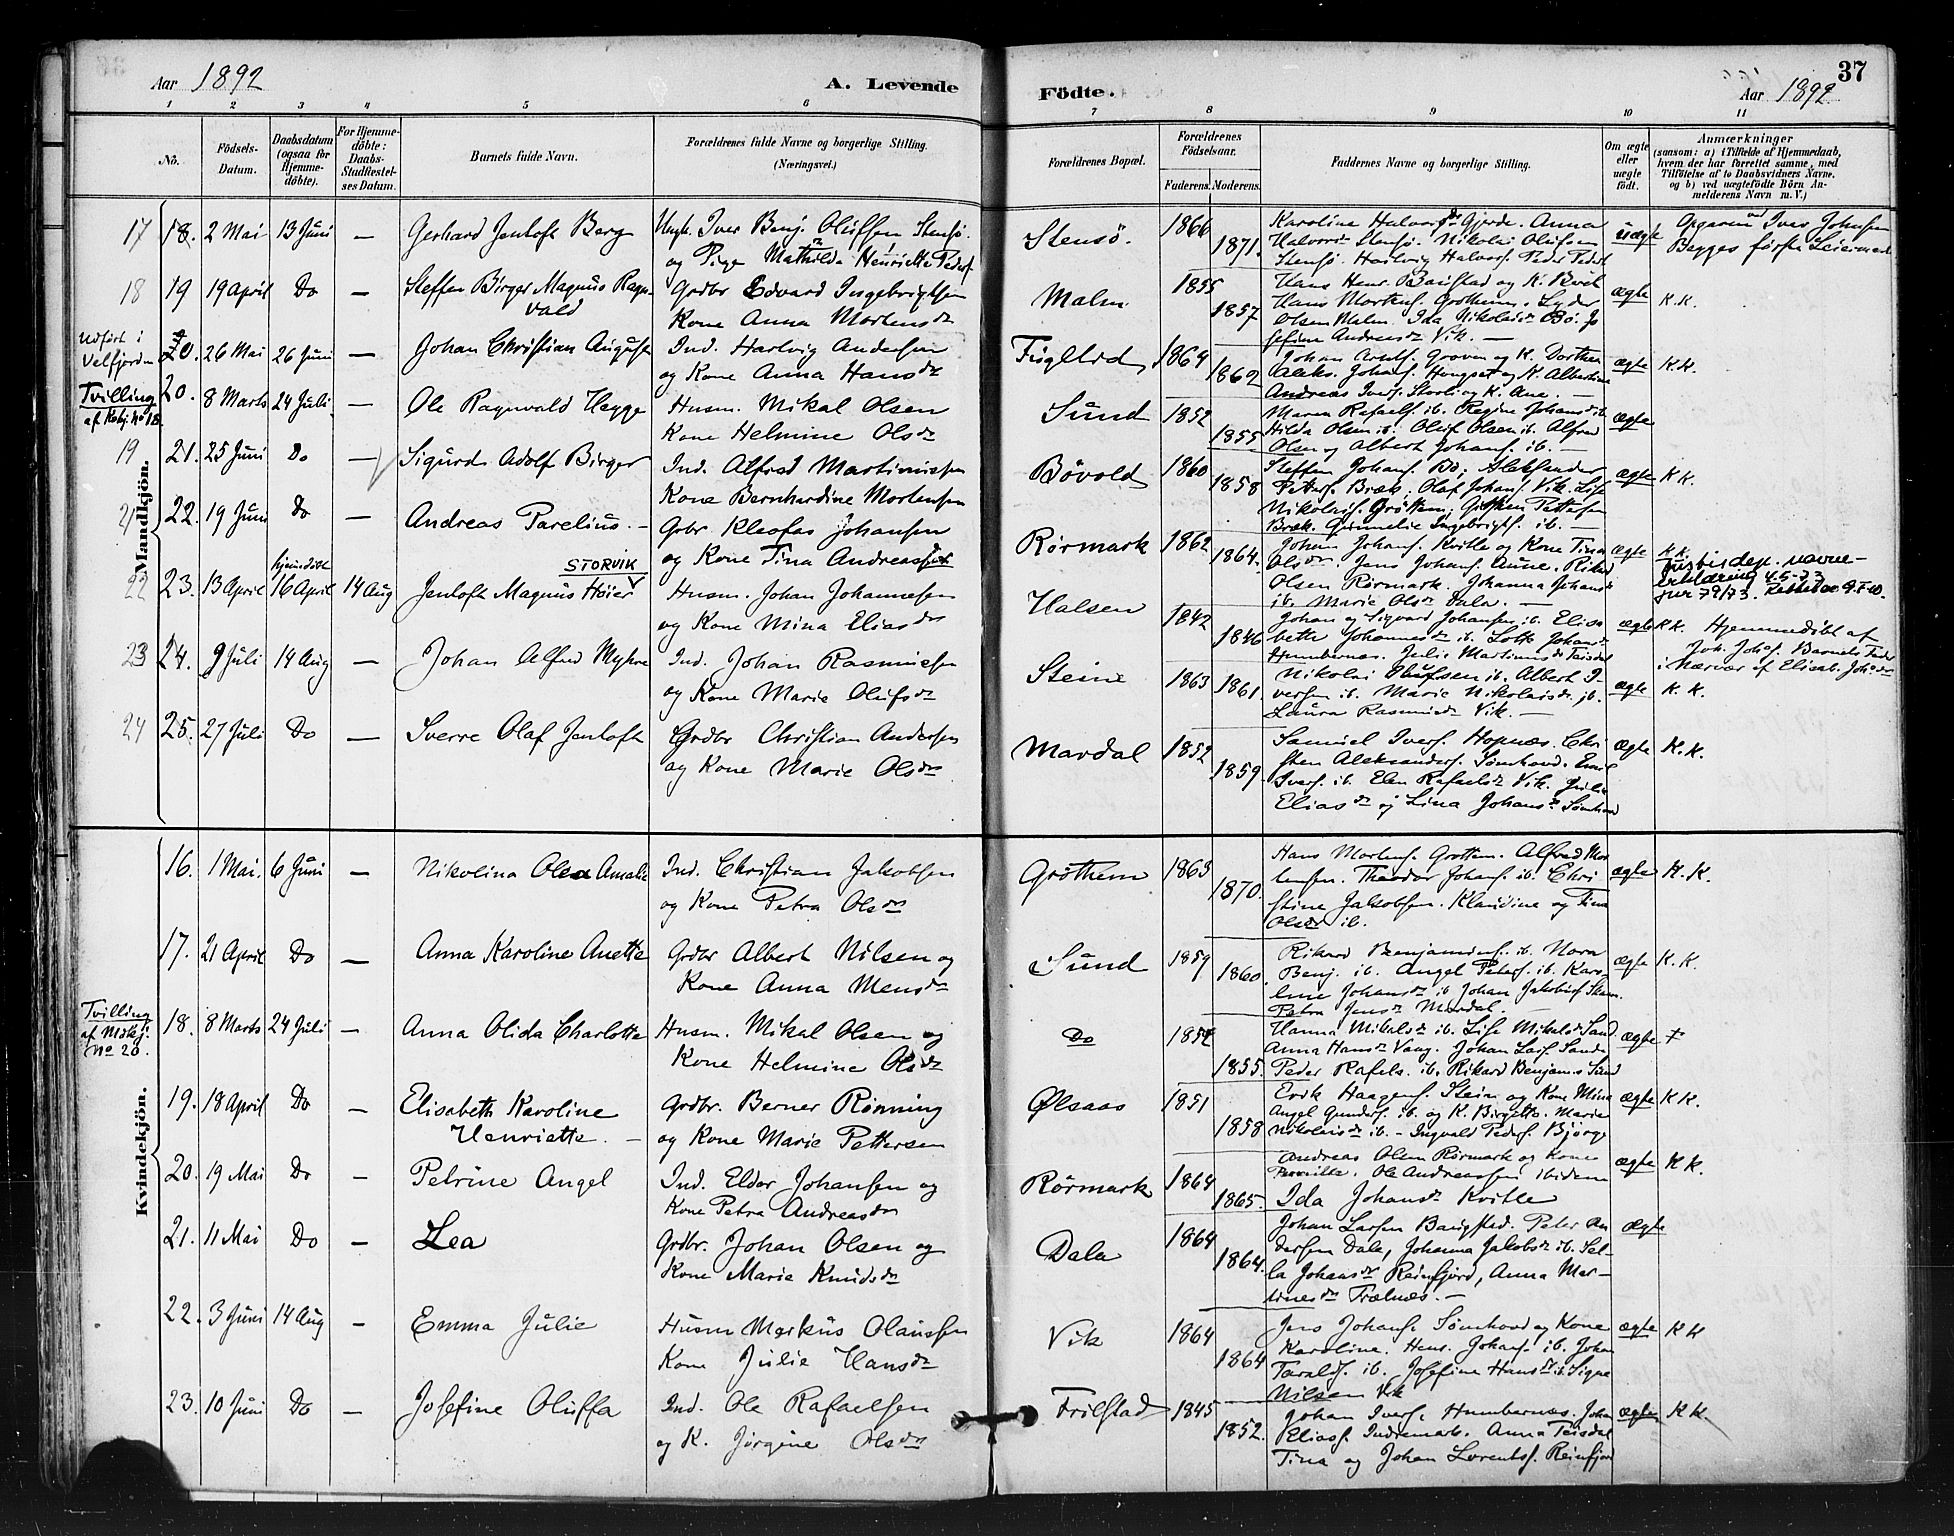 Aar 1892
A. Levende
Födte.
37
Aar 1892
1 2 3 4 5 6 7 8 9 10 11
No.
Födsels-
Datum.
Daabsdatum
(ogsaa for
Hjemme-
döbte).
For Hjemme-
döbte:
Daabs-
Stadfæstel-
ses Datum.
Barnets fulde Navn.
Forældrenes fulde Navne og borgerlige Stilling.
(Næringsvei.)
Forældrenes Bopæl.
Forældrenes
Födselsaar.
Faderens. Moderens.
Faddernes Navne og borgerlige Stilling.
Om ægte
eller
uægte
födt.
Anmærkninger
(saasom: a) i Tilfælde af Hjemmedaab,
hvem der har forrettet samme, med
Tilföielse af to Daabsvidners Navne.
og b) ved uægtefödte Börn An-
melderens Navn m. V.)
Mandkjön.
17 18. 2 Mai 13 Juni — Gerhard Jentoft Berg
Ungk. Iver Benj. Olufsen Stensö.
og Pige Mathilda Henriette Peders
Stensö. 1866 1871.
uægte
18 19 19 April Do — Steffen Birger Magnus Ragn-
vald
Grdbr Edvard Ingebrigtsen
Kone Anna Mortensdr
Malm 1855 1857
Hans Mortens. Grøthem. Lyder
Olsen Malm. Ida Nikolaisdr Bö. Jo
sefine Andreasdr Vik. —
ægte K.K.
Udfört i
Velfjorden
20. 26 Mai 26 Juni — Johan Christian August
Ind. Hartvig Andersen
og Kone Anna Hansdr
1864 1862
ægte K.K.
Tvilling
af Kvkj. No 18.
20. 8 Marts 24 Juli — Ole Ragnvald Hegge
Husm. Mikal Olsen
Kone Helmine Olsdr
Sund 1852 1855
Hilda Olsen ib. Oluf Olsen ib. Alfred
Olsen og Albert Johans. ib. —
ægte
19 21. 25 Juni Do — Sigurd Adolf Birger
Ind. Alfred Martinussen
Kone Bernhardine Mortensen
Bövold 1860 1858
Steffen Johans. Bö. Aleksander
Petters. Bræk. Olaf Johans. Vik. Lise
Bræk. Ingebrigts. ib. —
ægte K K.
21 22. 19 Juni Do — Andreas Parelius. —
Grbr Kleofas Johansen
og Kone Tina Andreasdtr
Rörmark 1862 1864.
Johan Johans. Kvitle og Kone Tina
Olsdr. Jens Johans. Aune. Rikard
Olsen Rörmark. Johanna Johansdr
ib. Marie Olsdr Dala. —
ægte K.K.
hjemmedöbt
22 23. 13 April 16 April 14 Aug Jentoft Magnus Høier
STORVIK
Husm. Johan Johannesen
og Kone Mina Eliasdr
Halsen 1842 1846
Johan og Sigvard Johansen ib. Elisa
bette Johannesdr ib. Lotte Johansdr
Humbernæs. Julie Martinusdr Teisdal
ægte K.K. Hjemmedöbt af
Joh. Johs. Barnets Fader
i Nærvær af Elisab. Johsdr
23 24. 9 Juli 14 Aug — Johan Alfred Myhre
Ind. Johan Rasmusen
og Kone Marie Olufsdr
Steine 1863 1861.
Nikolai Olufsen ib. Albert I-
versen ib. Marie Nikolaisdr ib.
Laura Rasmusdr Vik. —
ægte K. K.
24 25. 27 Juli Do — Sverre Olaf Jentoft
Grdbr Christian Andersen
og Kone Marie Olsdr
Mardal 1852 1859.
Samuel Ivers. Hopnæs. Chri
sten Aleksanders. Sömhovd. Emil
Ivers. ib. Elen Rafaelsdr Vik. Julie
Eliasdr og Lina Johansdr Sömhovd
ægte K.K.
Kvindekjön.
16. 1 Mai. 6 Juni — Nikolina Olea Amalie
Ind. Christian Jakobsen
og Kone Petra Olsdr
Grøthem 1863 1870.
Hans Mortens. Grøttem. Alfred Mor
tensen. Theodor Johans. ib. Chri
stine Jakobsen. Klaudine og Tina
Olsdr ib.
ægte K.K.
17. 21 April Do — Anna Karoline Anette
Grdbr Albert Nilsen og
Kone Anna Mensdr
Sund 1859 1860.
Rikard Benjamins. ib. Nora
Benj. ib. Angel Peters. ib. Karo-
line Johansdr ib. Johan Jakobsen
Petra Jensdr Mardal. —
ægte K.K.
Tvilling
af Mdkj.
No 20.
18. 8 Marts 24 Juli — Anna Olida Charlotte
Husm. Mikal Olsen og
Kone Helmine Olsdr
Do 1852 1855.
Hanna Mikalsdr ib. Lise Mikalsdr Sund
Anna Hansdr Vaag. Johan Lars. Sund
Peder Rafels. ib. Rikard Benjamins Sund
ægte +
19. 18 April Do — Elisabeth Karoline
Henriette. —
Grdbr. Berner Rönning
og Kone Marie Pettersen
Ølsaas 1851 1858
Erik Haagens. Stein og Kone Mina
Angel Gunders. ib. og K. Birgitte. Marie
Nikolaisdr ib. - Ingvald Peders. Bjørge
ægte K K.
20. 19 Mai Do — Petrine Angel
Ind. Eldor Johansen og
Kone Petra Andreasdr
Rörmark 1864 1865.
Andreas Olsen Rörmark og Kone
Pernille. Ole Andreassen ibidem
Ida Johansdr Kvitle
ægte K K.
21. 11 Mai Do — Lea
Grdbr. Johan Olsen og
Kone Marie Knudsdr
Dala 1864 1864.
Johan Larsen Baugsted. Peter An
dersen Dala, Johanna Jakobsdr ib. Sel-
la Johansdr Reinfjord, Anna Mar-
tinesdr Trælnæs. —
ægte
22. 3 Juni 14 Aug — Emma Julie
Husm Markus Olaussen
Kone Julie Hansdr
Vik 1864 1864
Jens Johans. Sömhovd og Kone
Karoline. Hans Johans. ib. Johan
Taralds. ib. Josefine Hansdr ib. Signe
Nilsen Vik
ægte K K
23. 10 Juni Do — Josefine Oluffa
Ind. Ole Rafaelsen
og K. Jörgine Olsdr
Frilstad 1845 1852.
Johan Ivers. Humbernæs. Johan
Elias. Indremark. Anna Teisdal
Tina og Johan Lorents. Reinfjord
ægte K K